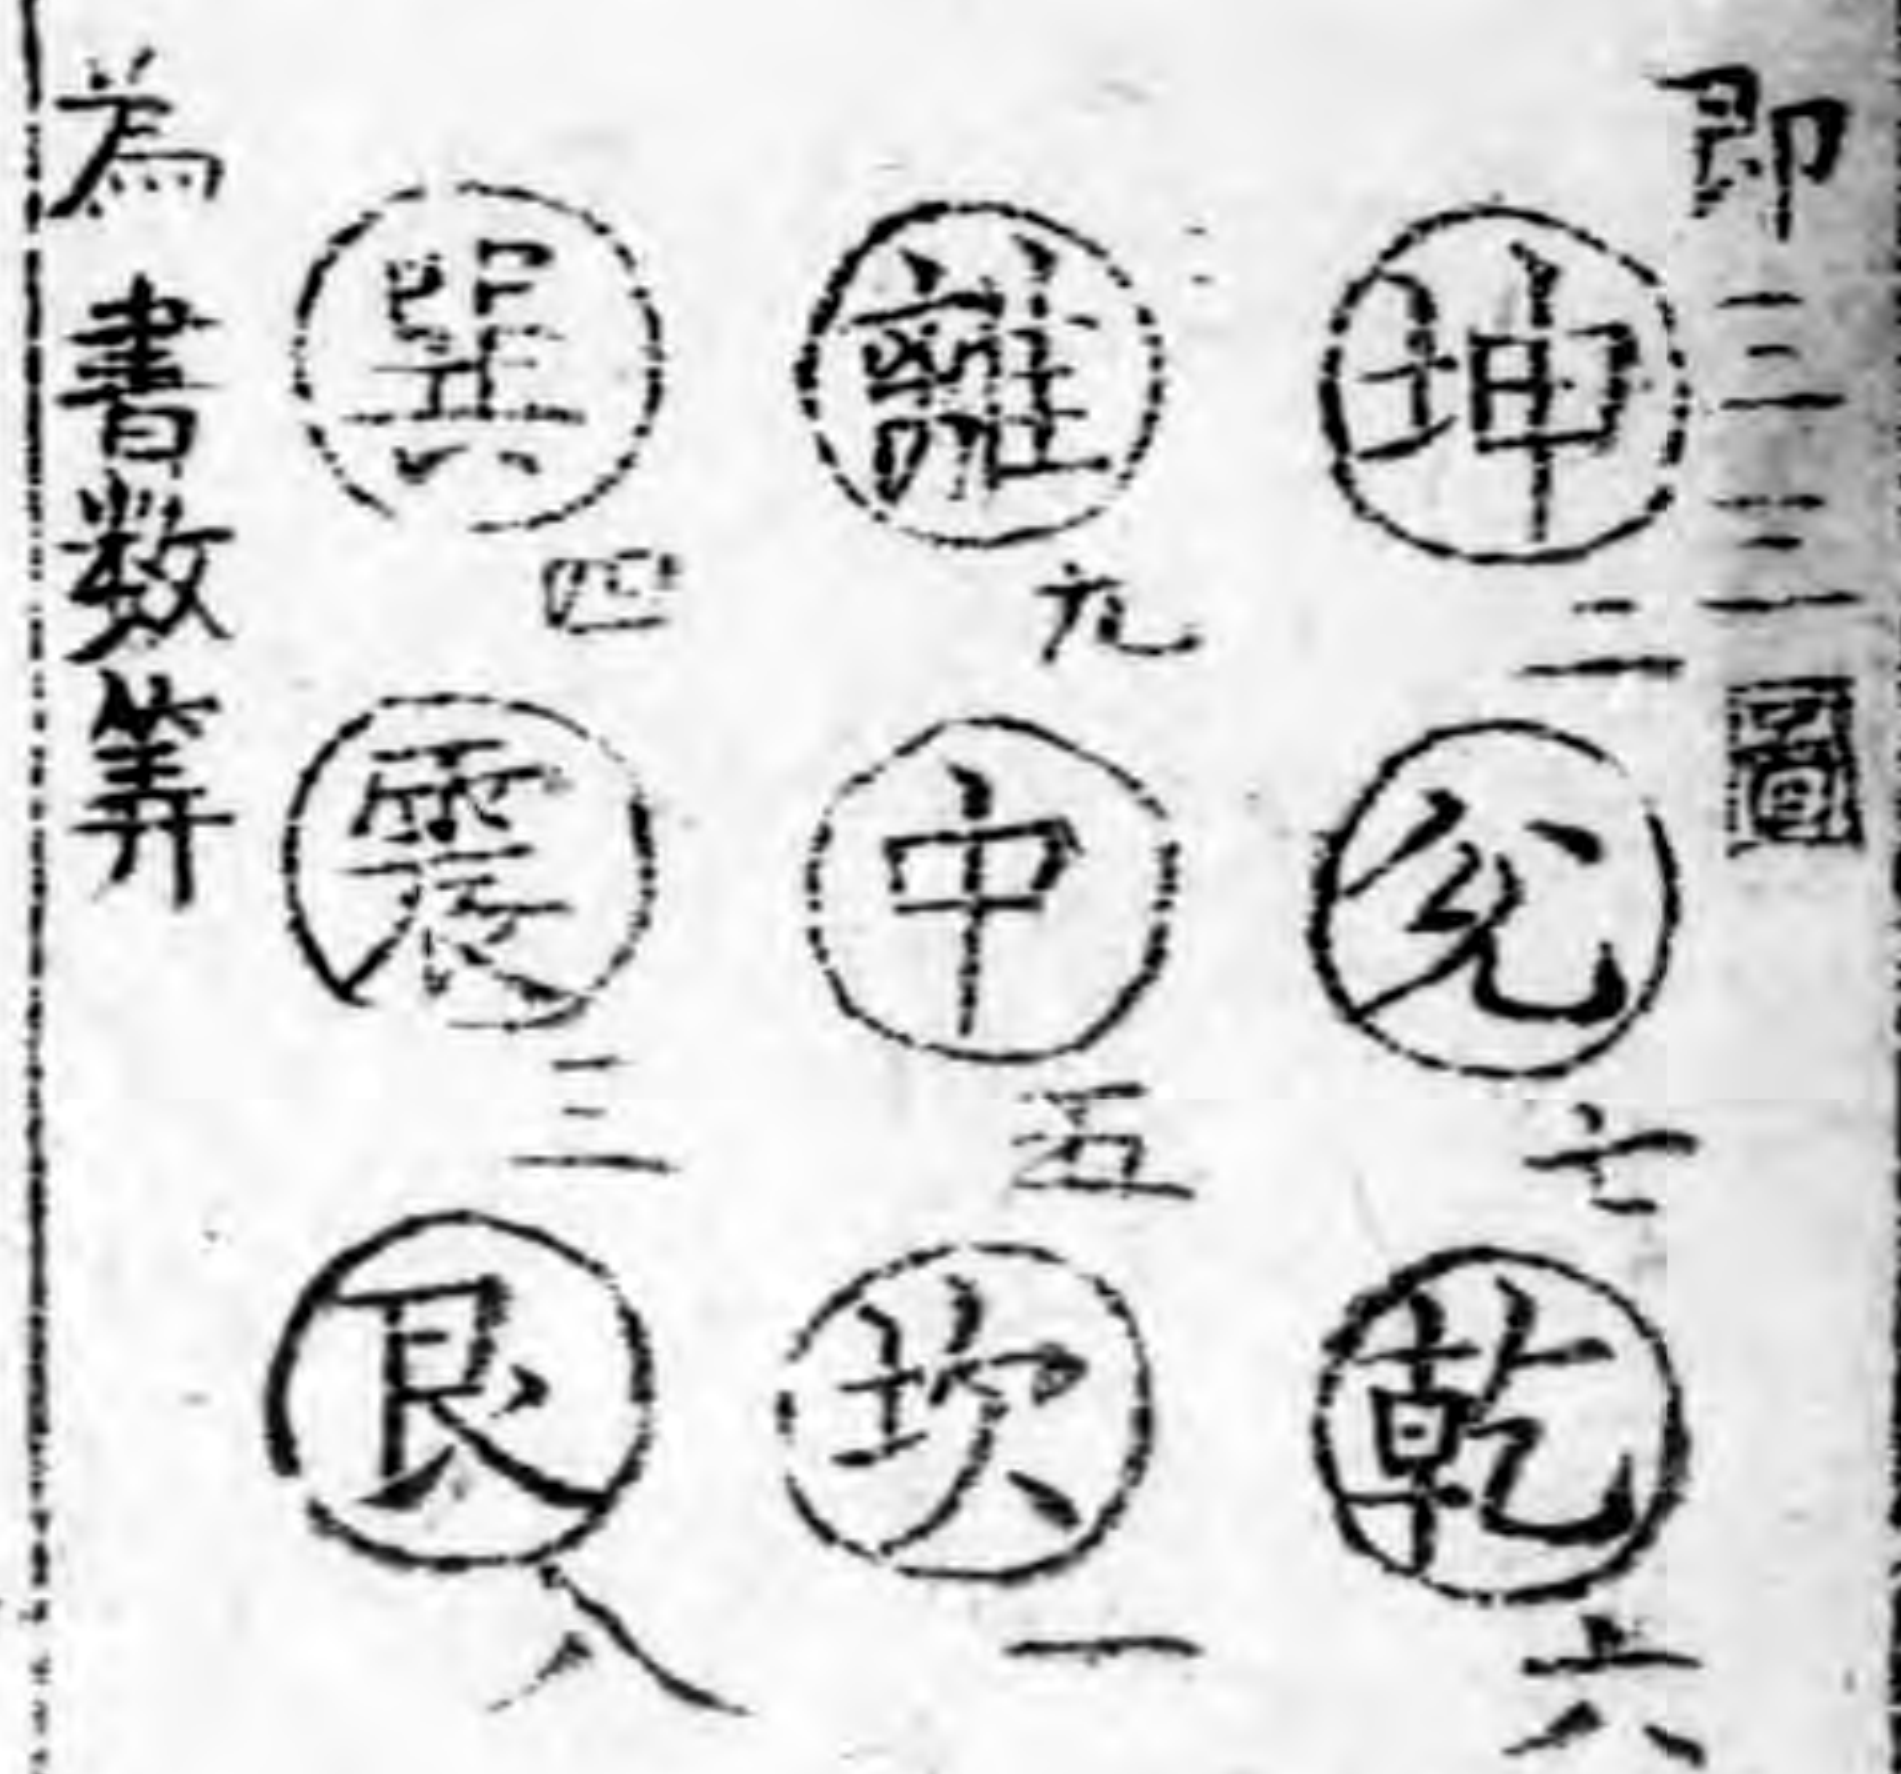 即三三圖
坤二
兌七
乾六
離九
中五
坎一
巽四
震三
艮八
為書数筭